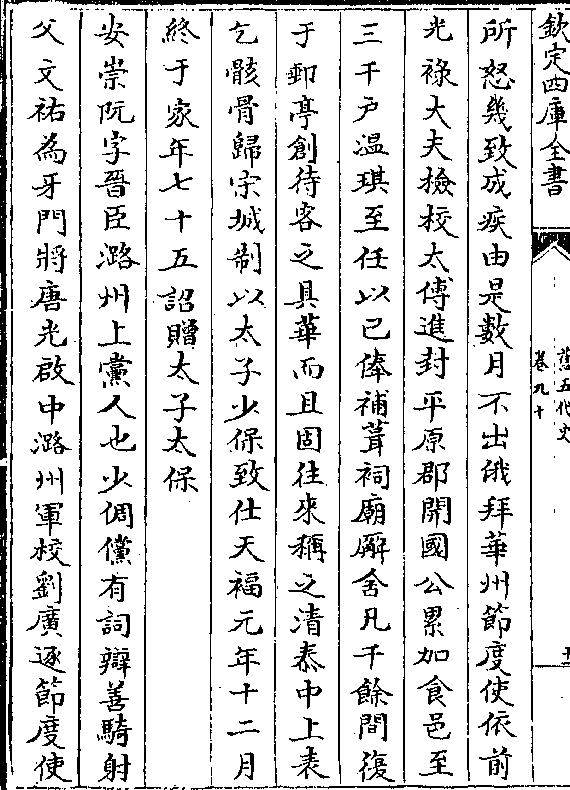 欽定四庫全書
舊五代史
卷九十
十
所怒幾致成疾由是數月不出俄拜華州節度使依前
光祿大夫檢校太傅進封平原郡開國公累加食邑至
三千户温琪至任以已俸補葺祠廟廨舍凡千餘間復
于郵亭創待客之具華而且固往來稱之清泰中上表
乞骸骨歸宋城制以太子少保致仕天福元年十二月
終于家年七十五詔贈太子太保
安崇阮字晉臣潞州上黨人也少倜儻有詞辯善騎射
父文祐為牙門將唐光啟中潞州軍校劉廣逐節度使